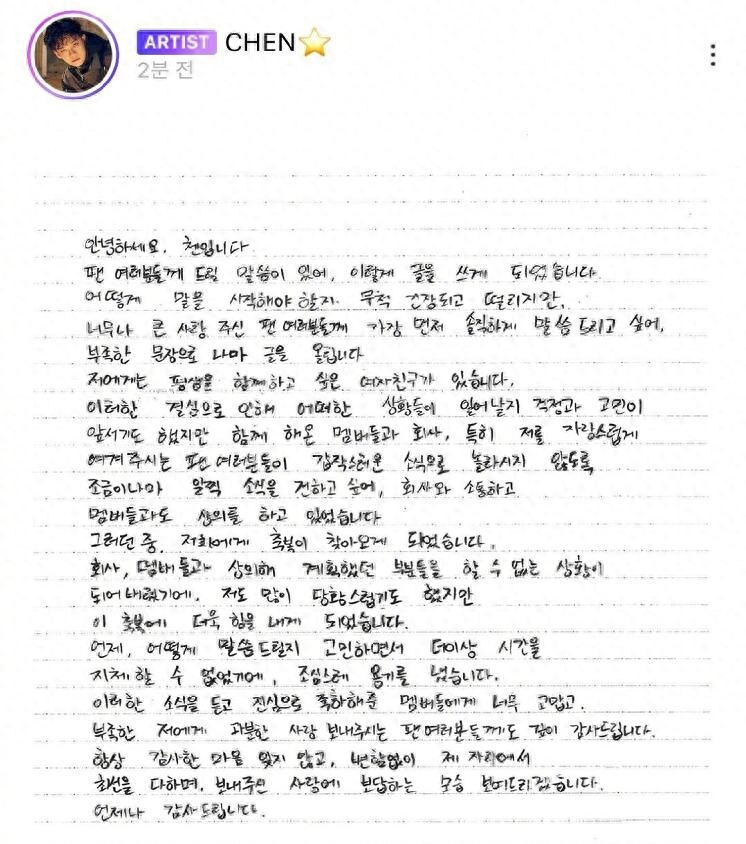 ARTIST CHEN⭐
2분 전
안녕하세요. 첸입니다
팬 여러분들께 드릴 말씀이 있어, 이렇게 글을 쓰게 되었습니다.
어떻게 말을 시작해야 할지 무척 긴장되고 떨리지만,
너무나 큰 사랑 주신 팬 여러분들께 가장 먼저 솔직하게 말씀드리고 싶어,
부족한 문장으로 나마 글을 올립니다
저에게는 평생을 함께하고 싶은 여자친구가 있습니다.
이러한 결심으로 인해 어떠한 상황들이 일어날지 걱정과 고민이
앞서기도 했지만 함께 해온 멤버들과 회사, 특히 저를 자랑스럽게
여겨주시는 팬 여러분들이 갑작스러운 소식으로 놀라시지 않도록
조금이나마 일찍 소식을 전하고 싶어, 회사와 소통하고
멤버들과도 상의를 하고 있었습니다
그러던 중, 저희에게 축복이 찾아오게 되었습니다.
회사, 멤버들과 상의해 계획했던 부분들을 할 수 없는 상황이
되어버렸기에, 저도 많이 당황스럽기도 했지만
이 축복에 더욱 힘을 내게 되었습니다.
언제, 어떻게 말씀드릴지 고민하면서 더이상 시간을
지체할 수 없었기에, 조심스레 용기를 냈습니다.
이러한 소식을 듣고 진심으로 축하해준 멤버들에게 너무 고맙고.
부족한 저에게 과분한 사랑 보내주시는 팬 여러분들께도 깊이 감사드립니다.
항상 감사한 마음 잊지 않고, 변함없이 제 자리에서
최선을 다하며, 보내주신 사랑에 보답하는 모습 보여드리겠습니다.
언제나 감사드립니다.